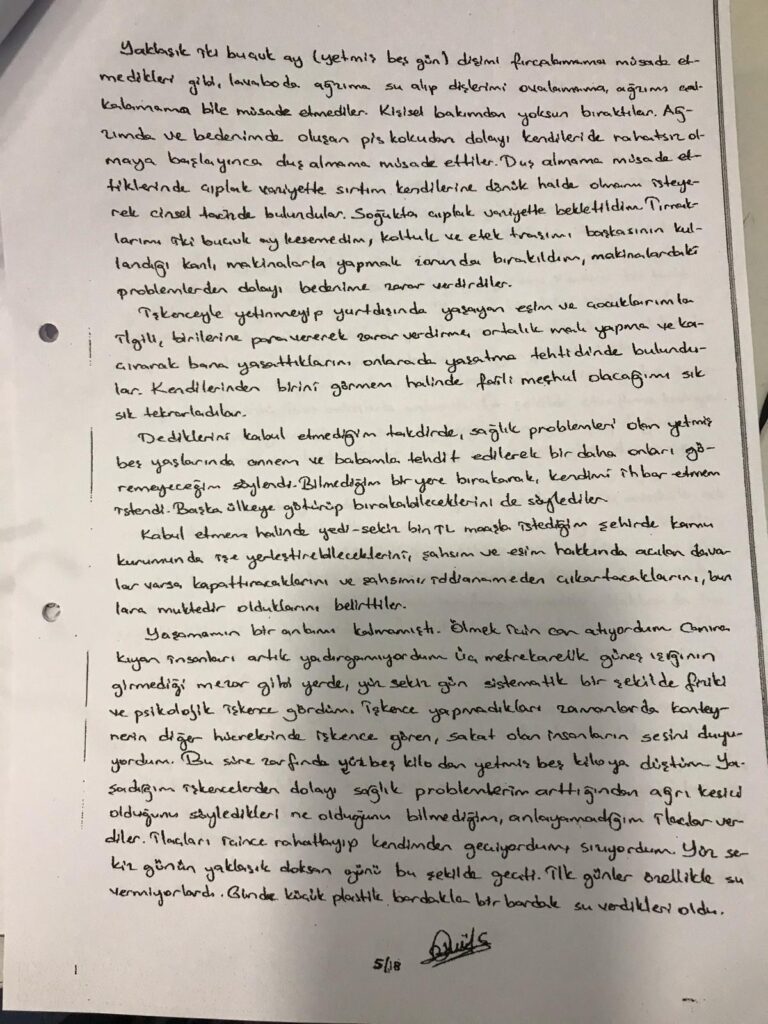 Yaklaşık iki buçuk ay (yetmiş beş gün) dişimi fırçalamama müsade et-
medikleri gibi, lavaboda ağzıma su alıp dişlerimi ovalamama, ağzımı çal-
kalamama bile müsade etmediler. Kişisel bakımdan yoksun bıraktılar. Ağ-
zımda ve bedenimde oluşan pis kokudan dolayı kendileride rahatsız ol-
maya başlayınca duş almama müsade ettiler. Duş almama müsade et-
tiklerinde çıplak vaziyette sırtım kendilerine dönük halde olmamı isteye-
rek cinsel tacizde bulundular. Soğukta çıplak vaziyette bekletildim Tırnak-
larımı iki buçuk ay kesemedim, koltuk ve etek traşımı başkasının kul-
landığı kanlı, makinalarla yapmak zorunda bırakıldım, makinalardaki
problemlerden dolayı bedenime zarar verdirdiler.
İşkenceyle yetinmeyip yurtdışında yaşayan eşim ve çocuklarımla
ilgili, birilerine para vererek zarar verdirme, ortalık malı yapma ve ka-
çırarak bana yaşattıklarını onlarada yaşatma tehtidinde bulundu-
lar. Kendilerinden birini görmem halinde faili meçhul olacağımı sık
sık tekrarladılar.
Dediklerini kabul etmediğim takdirde, sağlık problemleri olan yetmiş
beş yaşlarında annem ve babamla tehdit edilerek bir daha onları gö-
remeyeceğim söylendi. Bilmediğim bir yere bırakarak, kendimi ihbar etmem
istendi. Başka ülkeye götürüp bırakabileceklerini de söylediler.
Kabul etmem halinde yedi-sekiz bin TL maaşla istediğim şehirde kamu
kurumunda işe yerleştirebileceklerini, şahsım ve eşim hakkında açılan dava-
lar varsa kapattıracaklarını ve şahsımı iddianameden çıkartacaklarını, bun
lara muktedir olduklarını belirttiler.
Yaşamamın bir anlamı kalmamıştı. Ölmek için can atıyordum Canına
kıyan insanları artık yadırgamıyordum Üç metrekarelik güneş ışığının
girmediği mezar gibi yerde, yüz sekiz gün sistematik bir şekilde fiziki
ve psikolojik işkence gördüm. İşkence yapmadıkları zamanlarda kontey-
nerin diğer hücrelerinde işkence gören, sakat olan insanların sesini duyu-
yordum. Bu süre zarfında yüz beş kilodan yetmiş beş kiloya düştüm Ya-
şadığım işkencelerden dolayı sağlık problemlerim arttığından ağrı kesici
olduğunu söyledikleri ne olduğunu bilmediğim, anlayamadığım ilaçlar ver-
diler. İlaçları içince rahatlayıp kendimden geçiyordum, sızıyordum. Yüz se-
kiz günün yaklaşık doksan günü bu şekilde geçti. İlk günler özellikle su
vermiyorlardı. Günde küçük plastik bardakla bir bardak su verdikleri oldu.
5/18